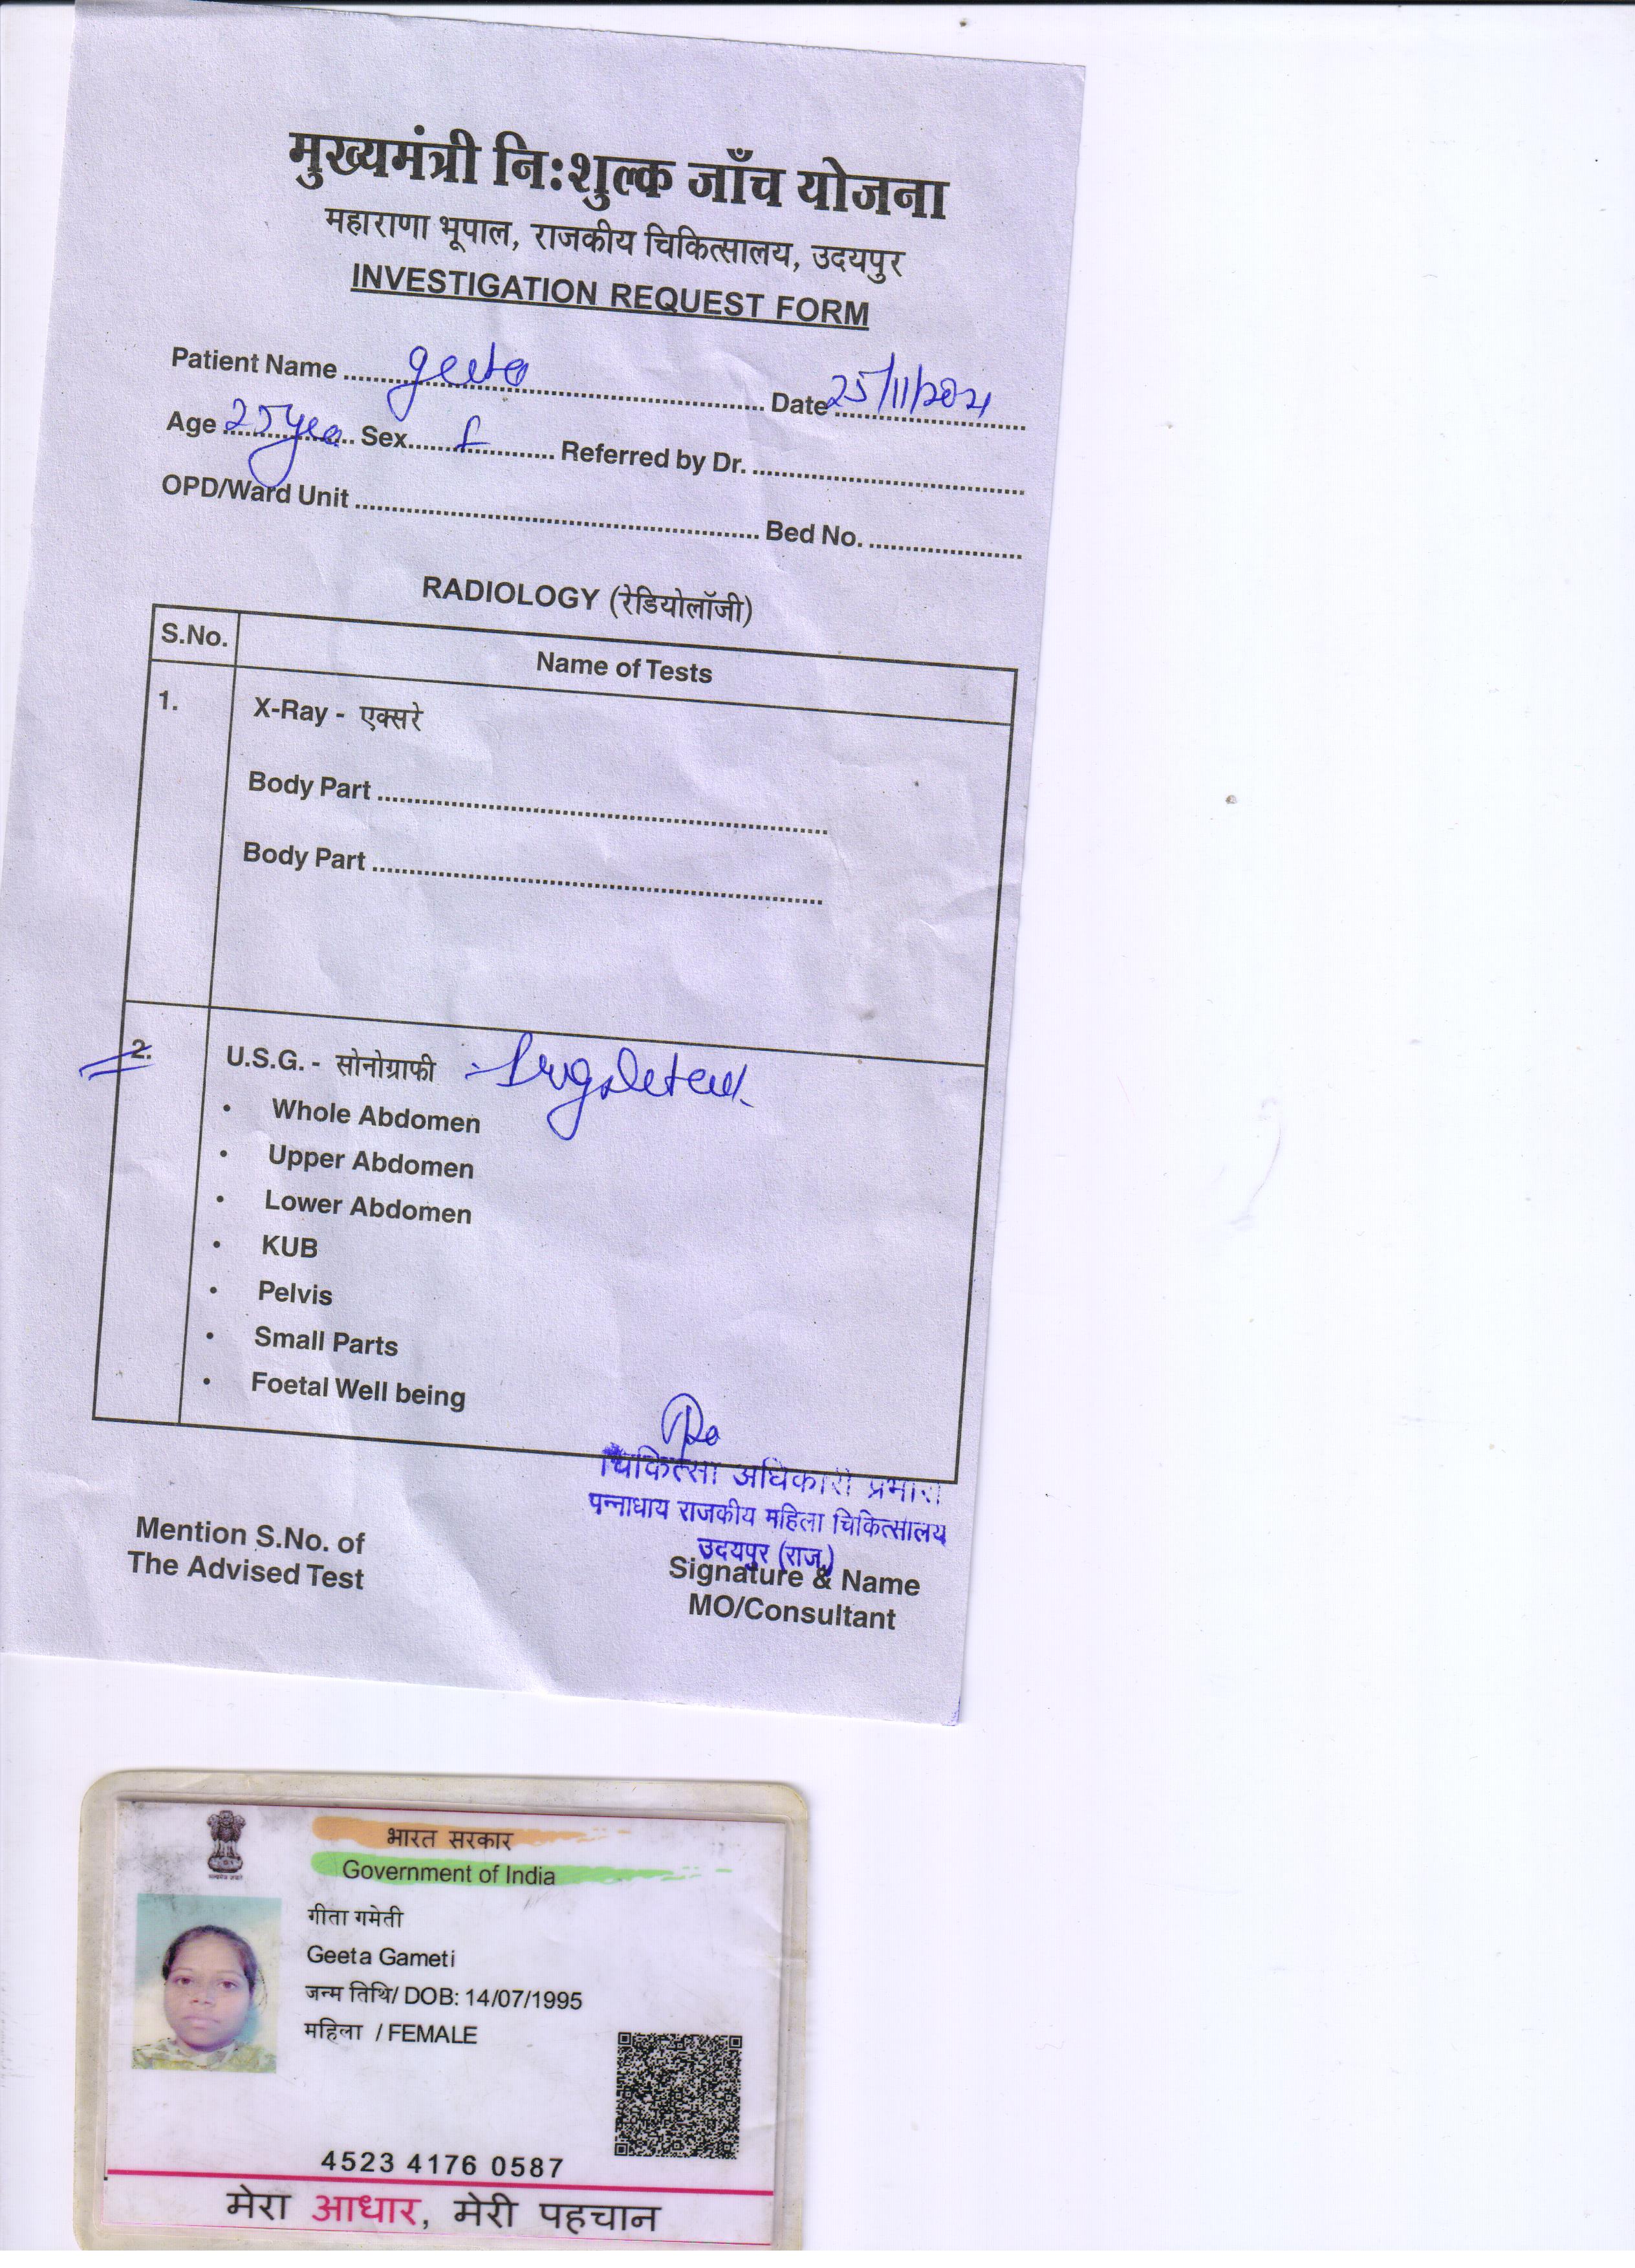 मुख्यमंत्री नि:शुल्क जाँच योजना
महाराणा भूपाल, राजकीय चिकित्सालय, उदयपुर
INVESTIGATION REQUEST FORM
Patient Name geeta Date 25/11/2021
Age 25 yea Sex f Referred by Dr.
OPD/Ward Unit Bed No.
RADIOLOGY (रेडियोलॉजी)
S.No. Name of Tests
1. X-Ray - एक्सरे
Body Part
Body Part
2. U.S.G. - सोनोग्राफी
• Whole Abdomen
• Upper Abdomen
• Lower Abdomen
• KUB
• Pelvis
• Small Parts
• Foetal Well being
चिकित्सा अधिकारी प्रभारी
पन्नाधाय राजकीय महिला चिकित्सालय
उदयपुर (राज.)
Mention S.No. of
The Advised Test
Signature & Name
MO/Consultant
भारत सरकार
Government of India
गीता गमेती
Geeta Gameti
जन्म तिथि/ DOB: 14/07/1995
महिला / FEMALE
4523 4176 0587
मेरा आधार, मेरी पहचान